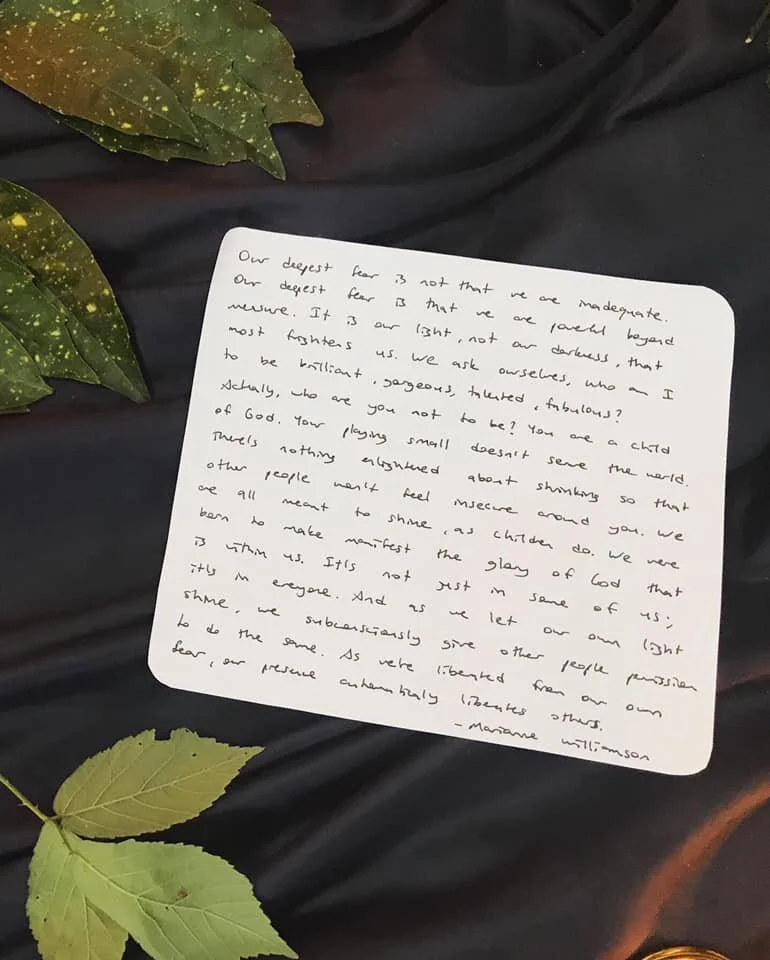 Our deepest fear is not that we are inadequate.
Our deepest fear is that we are powerful beyond
measure. It is our light, not our darkness, that
most frightens us. We ask ourselves, who am I
to be brilliant, gorgeous, talented, fabulous?
Actually, who are you not to be? You are a child
of God. Your playing small doesn't serve the world.
There's nothing enlightened about shrinking so that
other people won't feel insecure around you. We
are all meant to shine, as children do. We were
born to make manifest the glory of God that
is within us. It's not just in some of us;
it's in everyone. And as we let our own light
shine, we subconsciously give other people permission
to do the same. As we're liberated from our own
fear, our presence automatically liberates others.
- Marianne Williamson